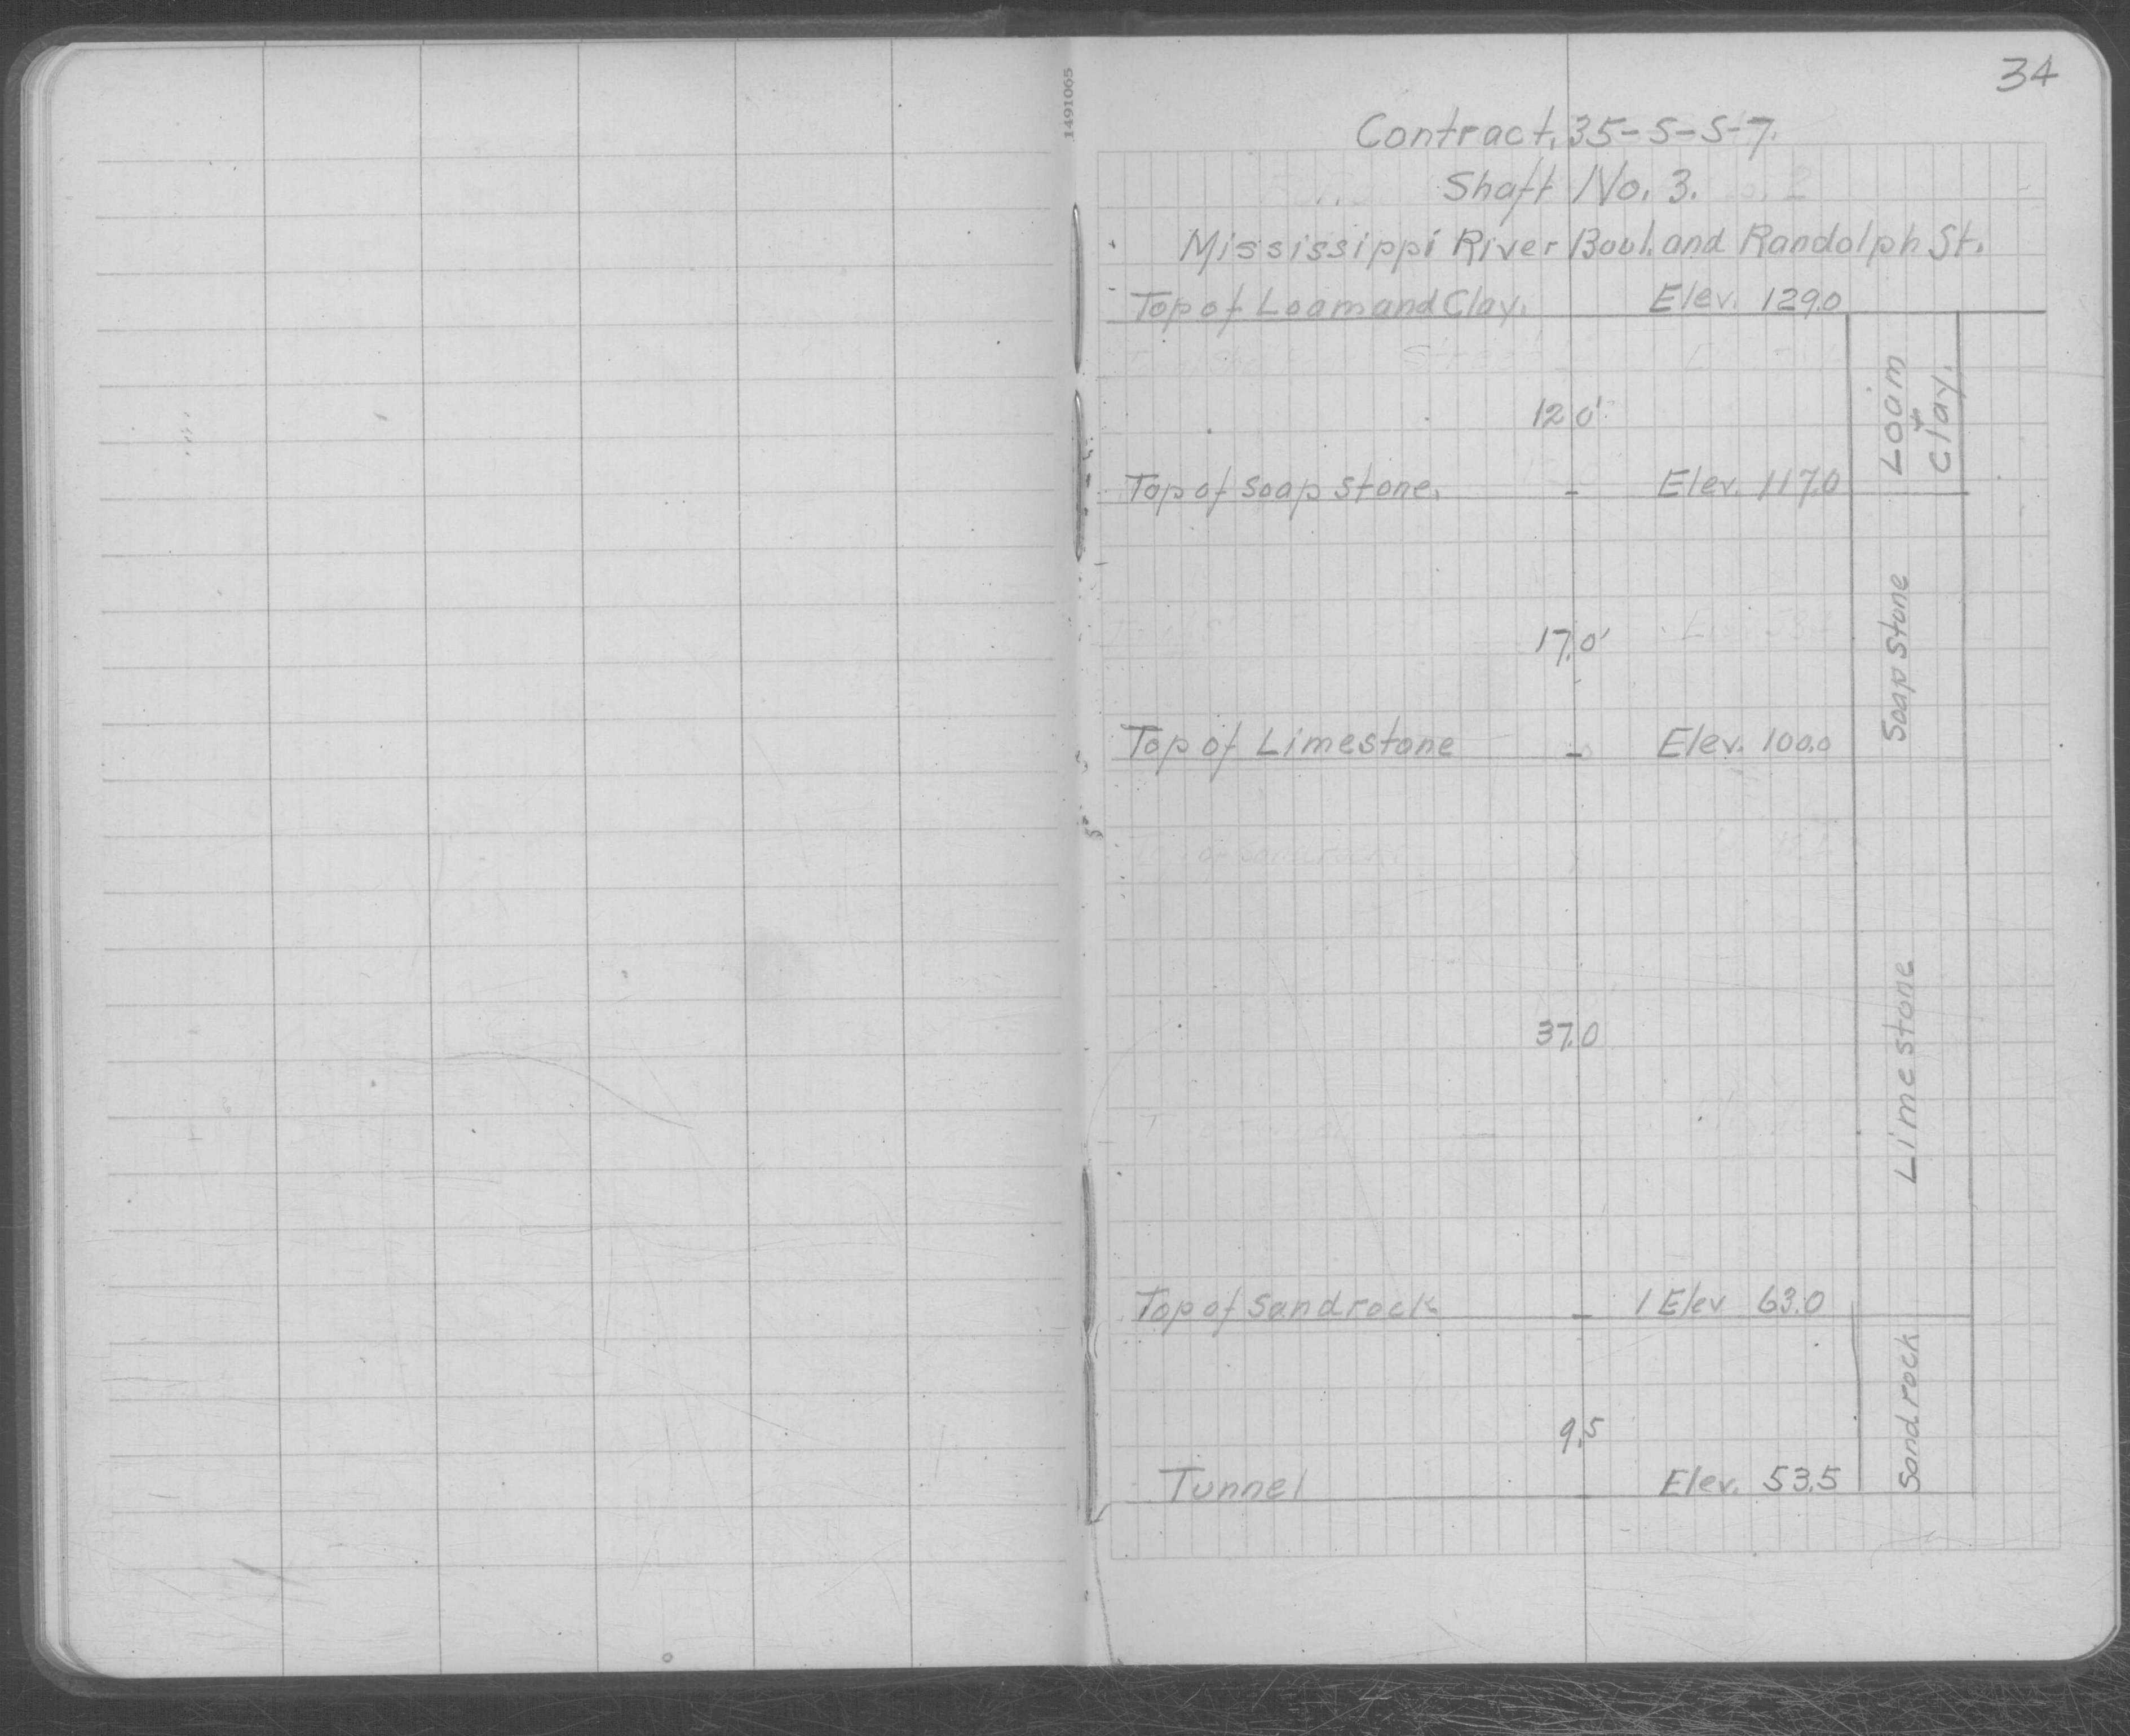 34
1491065
Contract. 35-S-S-7.
Shaft No. 3.
Mississippi River Boul. and Randolph St.
Top of Loam and Clay. Elev. 129.0
Loam + Clay.
12.0'
Top of Soap stone. - Elev. 117.0
Soap stone
17.0'
Top of Limestone - Elev. 100.0
Limestone
37.0
Top of Sandrock - 1 Elev 63.0
Sandrock
9.5
Tunnel Elev. 53.5